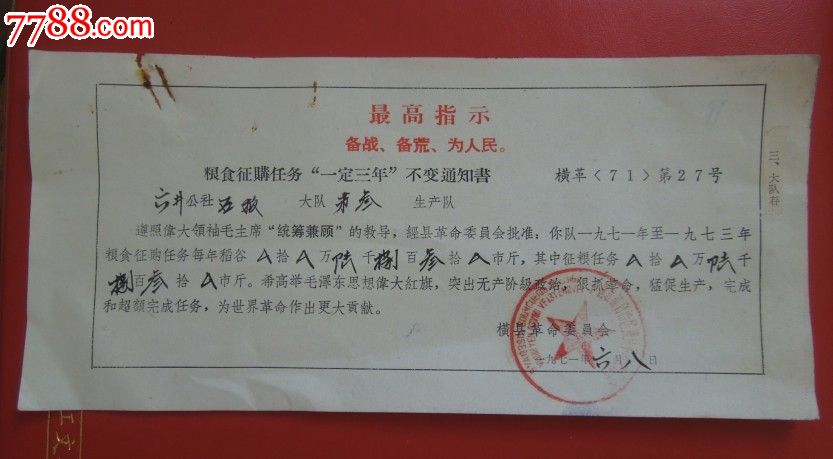 7788.com
最高指示
备战、备荒、为人民。
粮食征購任务“一定三年”不变通知書 横革〈71〉第27号
六井公社五权 大队 第叁 生产队
遵照偉大領袖毛主席“統筹兼顾”的教导，經县革命委員会批准：你队一九七一年至一九七三年
粮食征购任务每年稻谷 拾 万陆千捌百叁拾 市斤，其中征粮任务 拾 万陆千
捌百叁拾 市斤。希高举毛澤东思想偉大紅旗，突出无产阶級政治，狠抓革命，猛促生产，完成
和超額完成任务，为世界革命作出更大貢献。
横县革命委員会
一九七一年六月八日
三、大队存